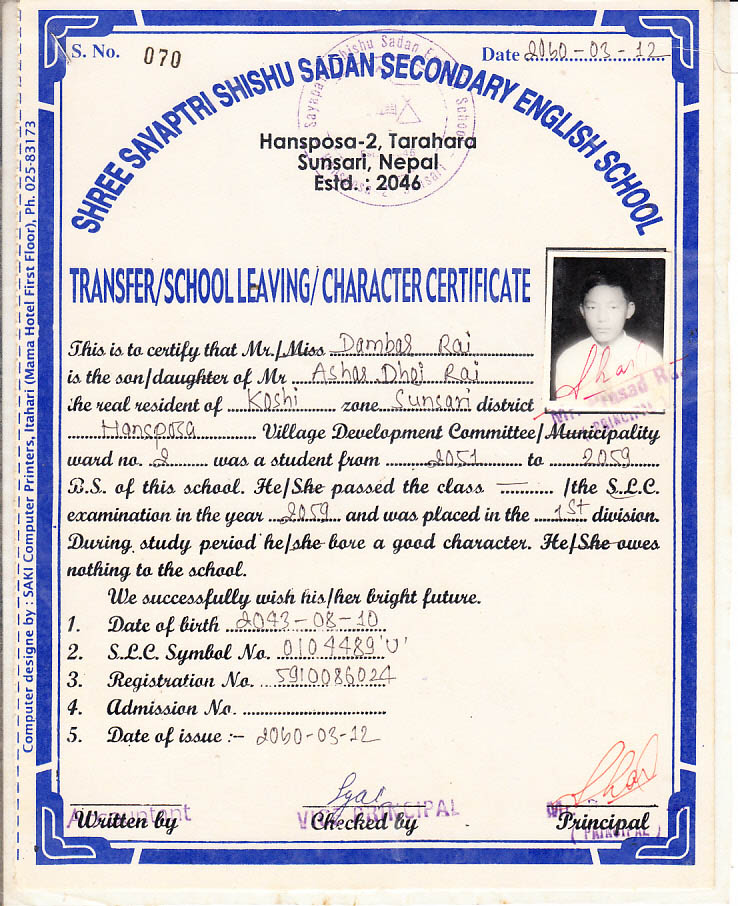 S. No. 070
Date 2060-03-12
SHREE SAYAPTRI SHISHU SADAN SECONDARY ENGLISH SCHOOL
Hansposa-2, Tarahara
Sunsari, Nepal
Estd. : 2046
TRANSFER/SCHOOL LEAVING/ CHARACTER CERTIFICATE
This is to certify that Mr./Miss Dambar Rai
is the son/daughter of Mr Ashar Dhoj Rai
the real resident of Koshi zone Sunsari district
Hansposa Village Development Committee/Municipality
ward no. 2 was a student from 2051 to 2059
B.S. of this school. He/She passed the class — /the S.L.C.
examination in the year 2059 and was placed in the 1st division.
During study period he/she bore a good character. He/She owes
nothing to the school.
We successfully wish his/her bright future.
1. Date of birth 2043-08-10
2. S.L.C. Symbol No. 0104489 'U'
3. Registration No. 5910086024
4. Admission No.
5. Date of issue :- 2060-03-12
Accountant
VICE PRINCIPAL
( PRINCIPAL )
Written by
Checked by
Principal
Computer designe by : SAKI Computer Printers, Itahari (Mama Hotel First Floor), Ph. 025-83173